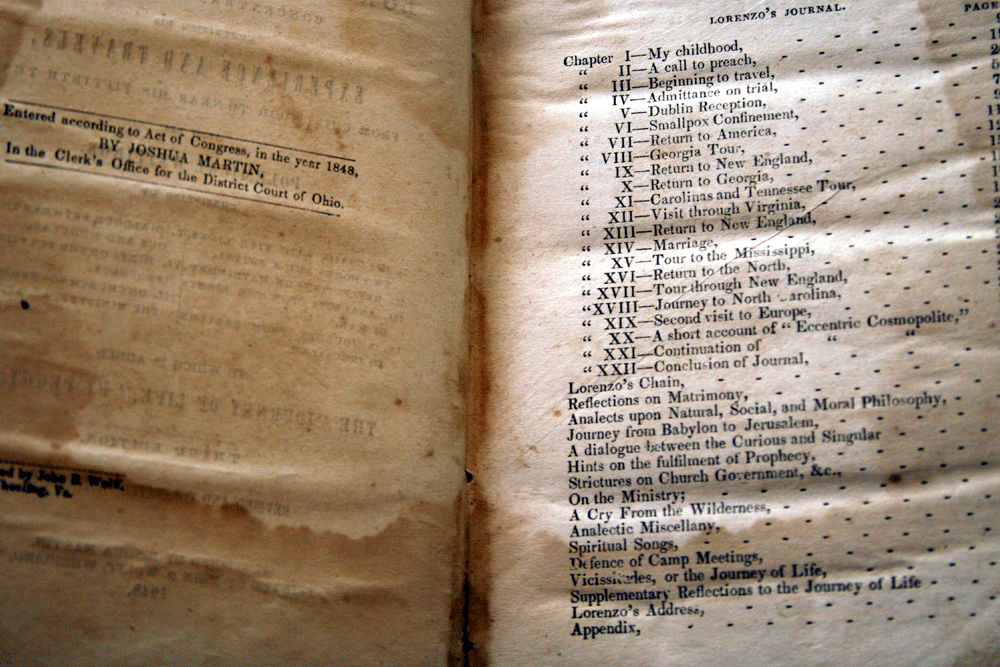 Entered according to Act of Congress, in the year 1848,
BY JOSHUA MARTIN,
In the Clerk's Office for the District Court of Ohio.
by John B Wolff,
Wheeling, Va.
LORENZO'S JOURNAL.
PAGE
Chapter I—My childhood,
“ II—A call to preach,
“ III—Beginning to travel,
“ IV—Admittance on trial,
“ V—Dublin Reception,
“ VI—Smallpox Confinement,
“ VII—Return to America,
“ VIII—Georgia Tour,
“ IX—Return to New England,
“ X—Return to Georgia,
“ XI—Carolinas and Tennessee Tour,
“ XII—Visit through Virginia,
“ XIII—Return to New England,
“ XIV—Marriage,
“ XV—Tour to the Mississippi,
“ XVI—Return to the North,
“ XVII—Tour through New England,
“ XVIII—Journey to North Carolina,
“ XIX—Second visit to Europe,
“ XX—A short account of “ Eccentric Cosmopolite,”
“ XXI—Continuation of “ “
“ XXII—Conclusion of Journal,
Lorenzo's Chain,
Reflections on Matrimony,
Analects upon Natural, Social, and Moral Philosophy,
Journey from Babylon to Jerusalem,
A dialogue between the Curious and Singular
Hints on the fulfilment of Prophecy,
Strictures on Church Government, &c.,
On the Ministry;
A Cry From the Wilderness,
Analectic Miscellany,
Spiritual Songs,
Defence of Camp Meetings,
Vicissitudes, or the Journey of Life,
Supplementary Reflections to the Journey of Life
Lorenzo's Address,
Appendix,